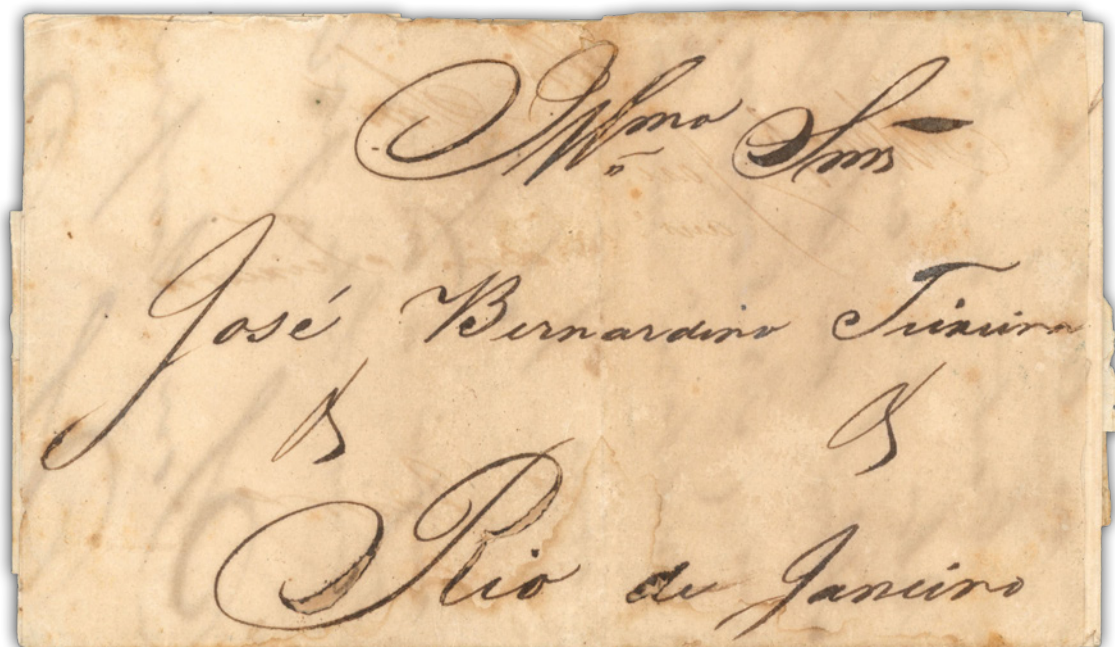 Illmo Snr
José Bernardino Teixeira
& &
Rio de Janeiro